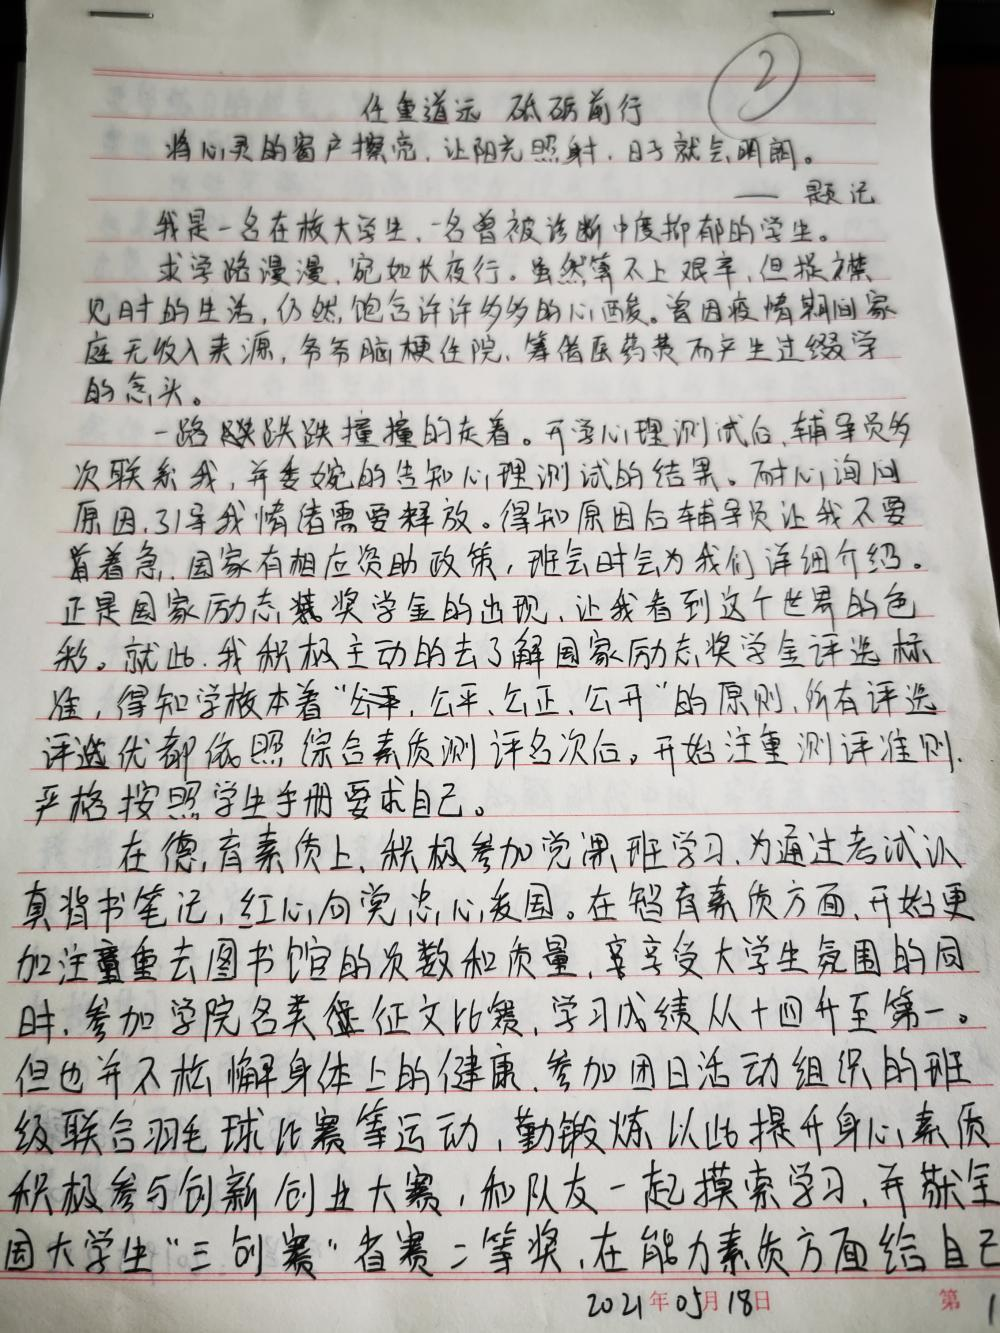 ②
任重道远 砥砺前行
将心灵的窗户擦亮，让阳光照射，日子就会明朗。
—— 题记
我是一名在校大学生，一名曾被诊断中度抑郁的学生。
求学路漫漫，宛如长夜行。虽然算不上艰辛，但捉襟
见时的生活，仍然饱含许许多多的心酸。曾因疫情期间家
庭无收入来源，爷爷脑梗住院，筹借医药费而产生过缀学
的念头。
一路跌跌撞撞的走着。开学心理测试后，辅导员多
次联系我，并委婉的告知心理测试的结果。耐心询问
原因，引导我情绪需要释放。得知原因后辅导员让我不要
着急，国家有相应资助政策，班会时会为我们详细介绍。
正是国家励志奖学金的出现，让我看到这个世界的色
彩。就此，我积极主动的去了解国家励志奖学金评选标
准，得知学校本着“公平、公正、公开”的原则，所有评选
评优都依照综合素质测评名次后。开始注重测评准则，
严格按照学生手册要求自己。
在德育素质上，积极参加党课班学习，为通过考试认
真背书笔记，红心向党忠心爱国。在智育素质方面，开始更
加注重去图书馆的次数和质量，享受大学生氛围的同
时，参加学院各类征文比赛，学习成绩从十四升至第一。
但也并不松懈身体上的健康，参加团日活动组织的班
级联合羽毛球比赛等运动，勤锻炼以此提升身心素质
积极参与创新创业大赛，和队友一起摸索学习，并获全
国大学生“三创赛”省赛二等奖，在能力素质方面给自己
2021年05月18日 第 1